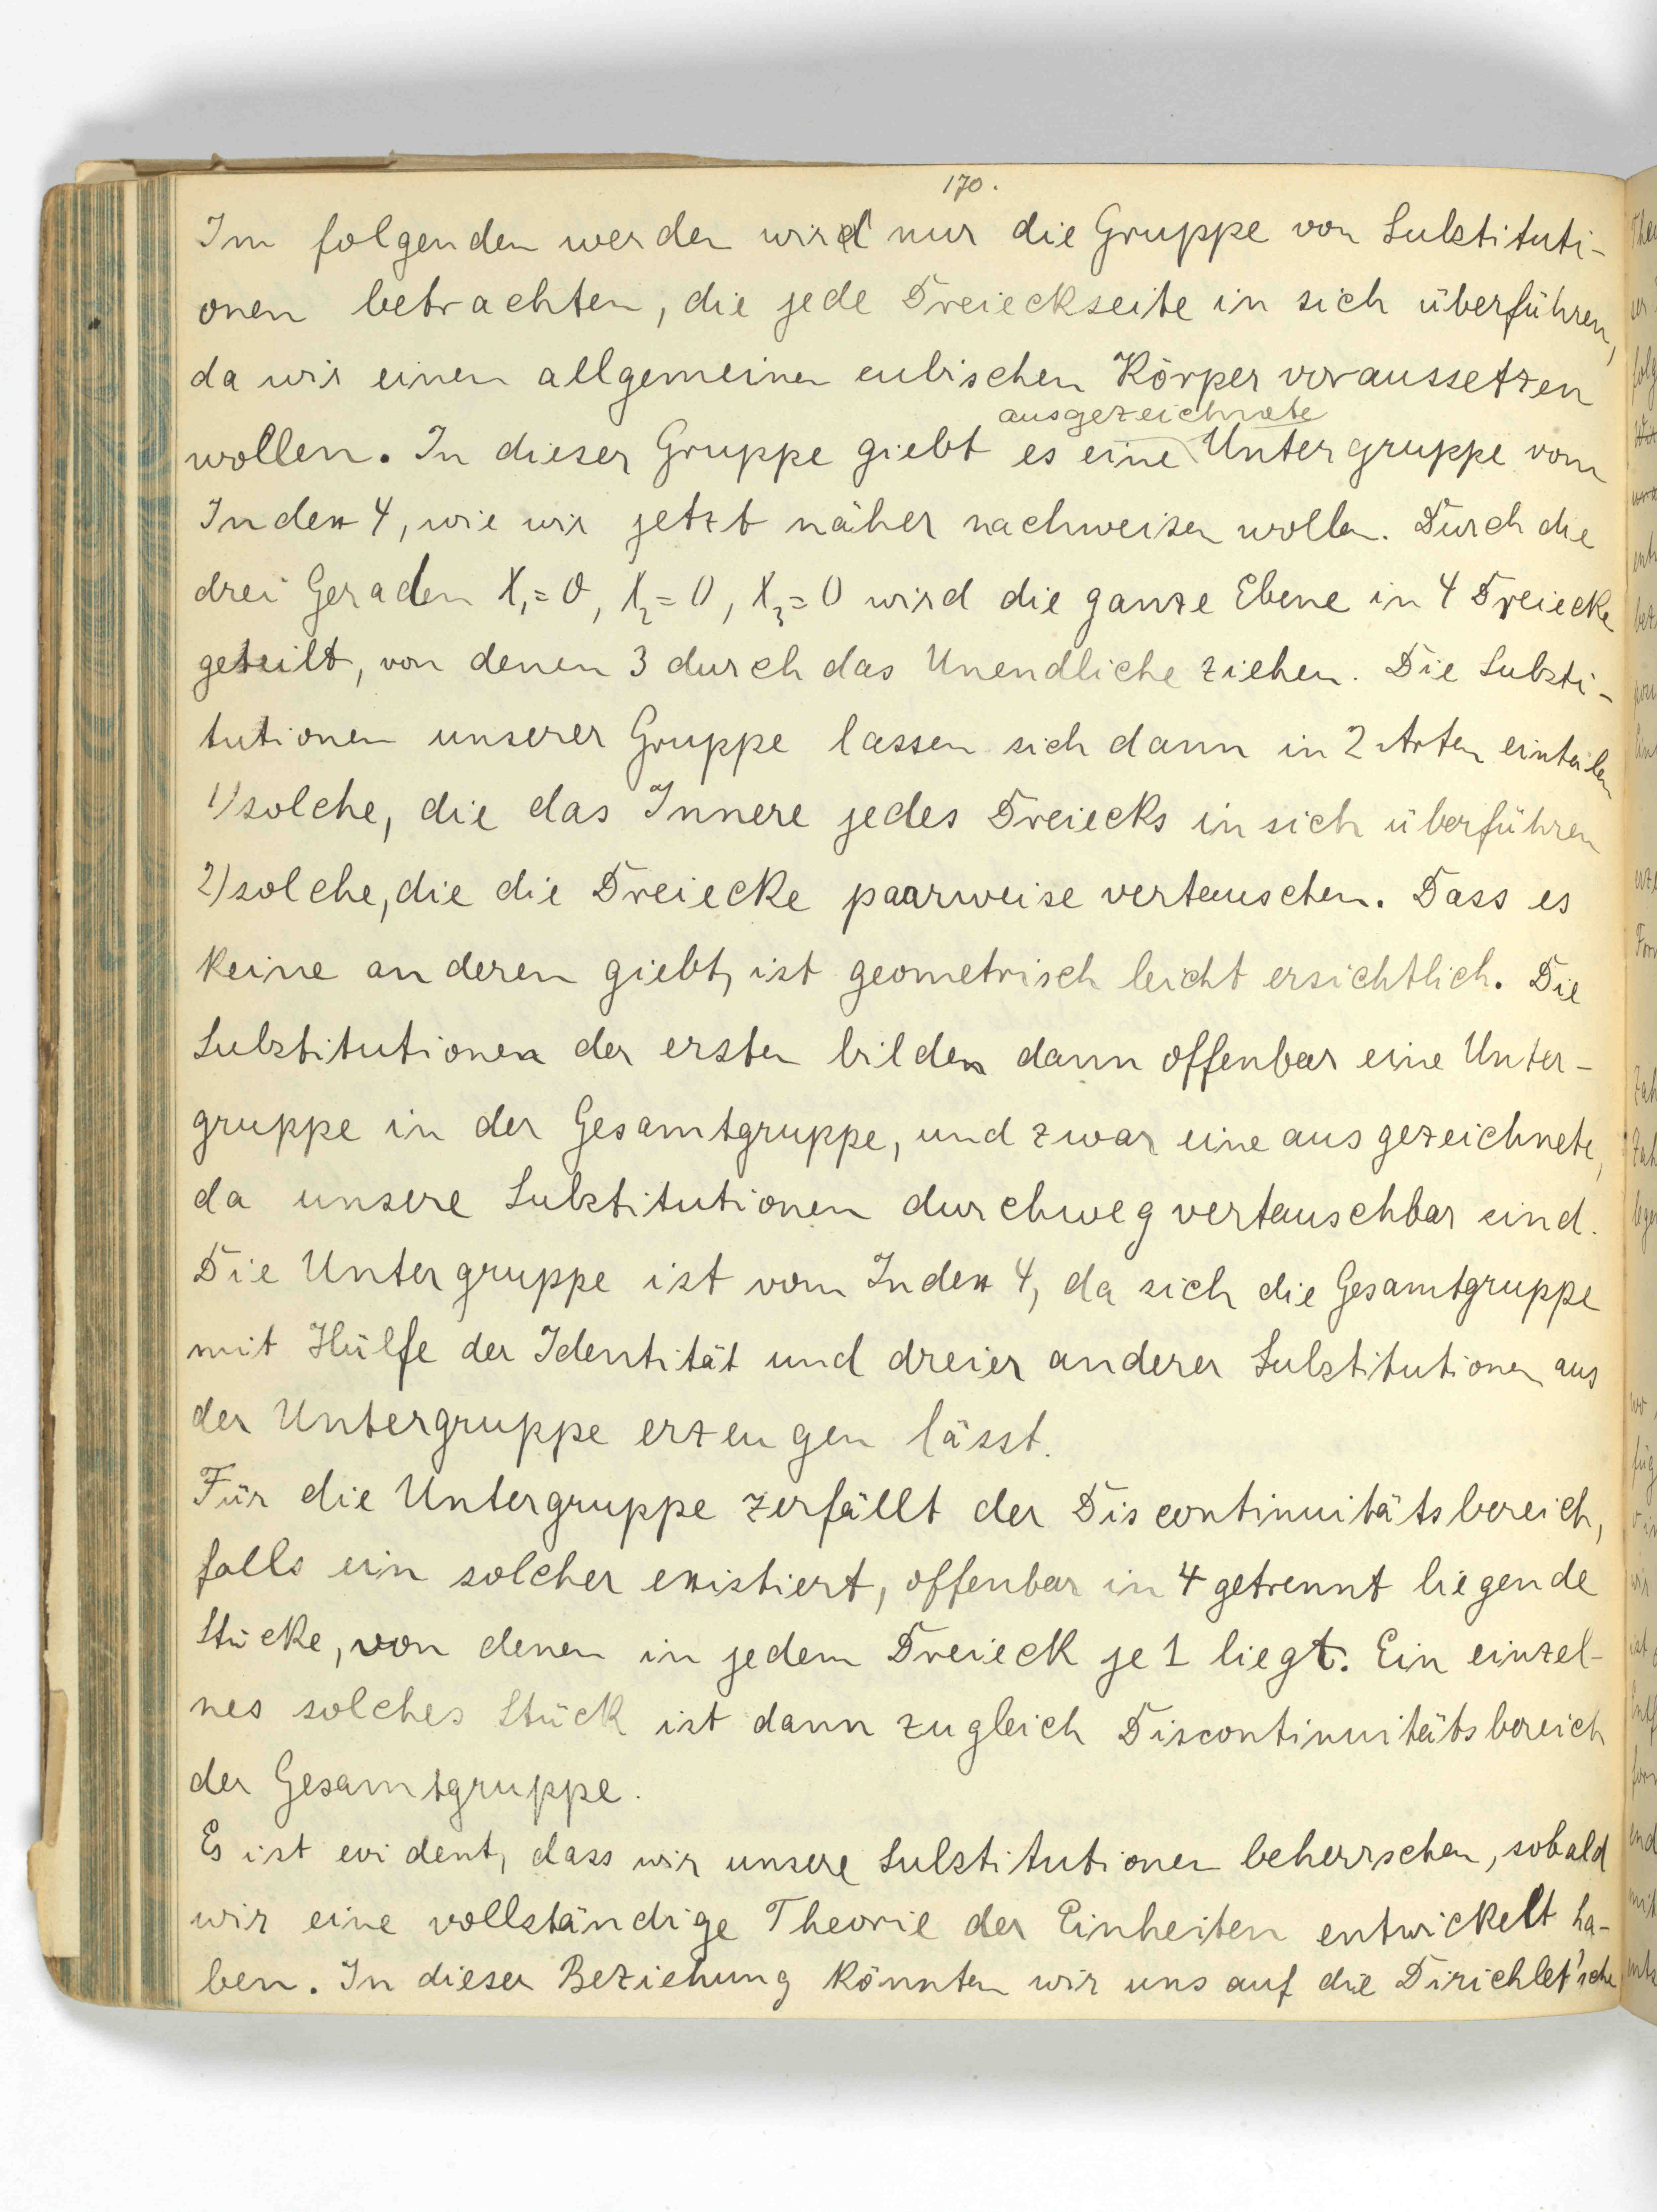 170.
Im folgenden werden wir nur die Gruppe von Substituti-
onen betrachten, die jede Dreieckseite in sich überführen,
da wir einen allgemeinen cubischen Körper voraussetzen
ausgezeichnete
wollen. In dieser Gruppe giebt es eine Untergruppe vom
Index 4, wie wir jetzt näher nachweisen wollen. Durch die
drei Geraden X₁=0, X₂=0, X₃=0 wird die ganze Ebene in 4 Dreiecke
geteilt, von denen 3 durch das Unendliche ziehen. Die Substi-
tutionen unserer Gruppe lassen sich dann in 2 Arten einteilen
1) solche, die das Innere jedes Dreiecks in sich überführen
2) solche, die die Dreiecke paarweise vertauschen. Dass es
keine anderen giebt, ist geometrisch leicht ersichtlich. Die
Substitutionen der ersten bilden dann offenbar eine Unter-
gruppe in der Gesamtgruppe, und zwar eine ausgezeichnete,
da unsere Substitutionen durchweg vertauschbar sind.
Die Untergruppe ist vom Index 4, da sich die Gesamtgruppe
mit Hülfe der Identität und dreier anderer Substitutionen aus
der Untergruppe erzeugen lässt.
Für die Untergruppe zerfällt der Discontinuitätsbereich,
falls ein solcher existiert, offenbar in 4 getrennt liegende
Stücke, von denen in jedem Dreieck je 1 liegt. Ein einzel-
nes solches Stück ist dann zugleich Discontinuitätsbereich
der Gesamtgruppe.
Es ist evident, dass wir unsere Substitutionen beherrschen, sobald
wir eine vollständige Theorie der Einheiten entwickelt ha-
ben. In dieser Beziehung könnten wir uns auf die Dirichlet'sche